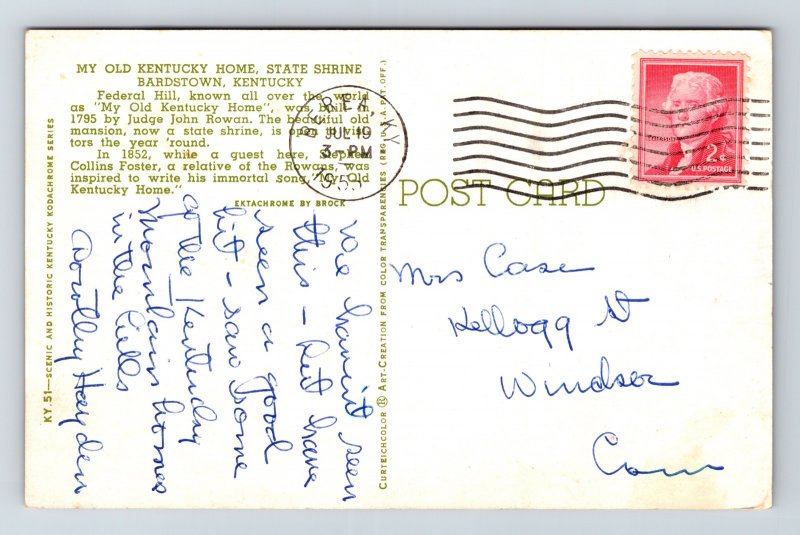 MY OLD KENTUCKY HOME, STATE SHRINE
BARDSTOWN, KENTUCKY
Federal Hill, known all over the world
as "My Old Kentucky Home", was built in
1795 by Judge John Rowan. The beautiful old
mansion, now a state shrine, is open to visi-
tors the year 'round.
In 1852, while a guest here, Stephen
Collins Foster, a relative of the Rowans, was
inspired to write his immortal song, "My Old
Kentucky Home."
EKTACHROME BY BROCK
KY.51—SCENIC AND HISTORIC KENTUCKY KODACHROME SERIES
We haven't seen
this - but have
seen a good
bit - saw some
of the Kentucky
Mountain homes
in the hills
Dorothy Hayden
CURTEICHCOLOR ® ART-CREATION FROM COLOR TRANSPARENCIES (REG. U.S.A. PAT. OFF.)
BEREA, KY.
JUL 19
3-PM
1955
2¢
U.S. POSTAGE
POST CARD
Mrs Case
Kellogg St
Windsor
Conn